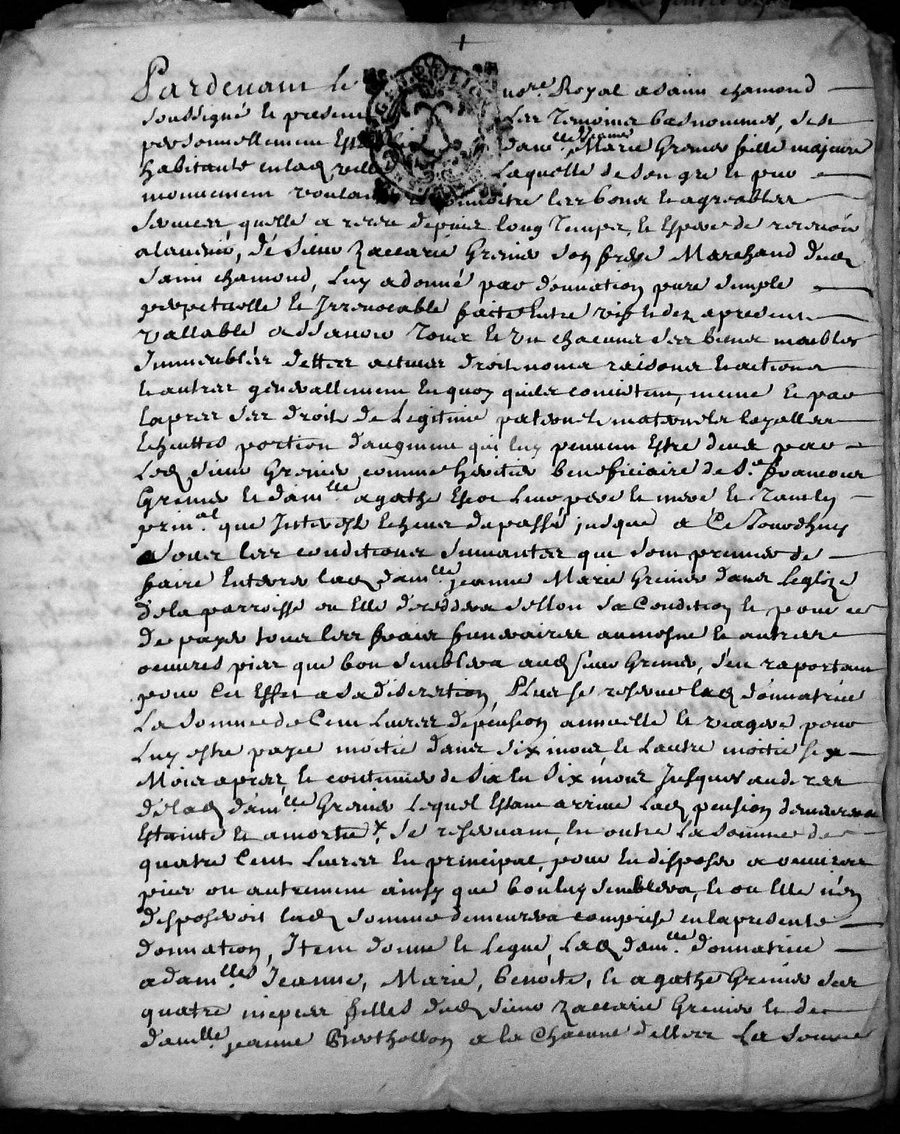 Pardevant le no.re Royal a saint chamond
soussigné et presents Les Temoins bas nommes, s'est
personnellement Est dam.lle Jeanne Marie Grenier fille majeure
habitante en lad ville Laquelle de son gre et pur
mouvement voulant reconnoitre les bons et agreables
services, quelle a receu depuis long Temps, et Espere de recevoir
a lavenir, de Sieur Zaccarie Grenier son frere Marchand dud
saint chamond, Luy a donné par donnation pure simple
perpetuelle et Irrevocable faite Entre vifs et des apresent
vallable assavoir Tous et un chacuns ses biens meubles
Immeubles dettes actives droits noms raisons et actions
et autres generallement En quoy quils consistent, meme et par
Expres ses droits de Legitime paternels maternels
Echeuttes portion d'augment qui luy peuvent Estre deus par
Led Sieur Grenier comme heritier beneficiaire de S.r francois
Grenier et dam.lle agathe Leurs pere et mere et Tant En
prin.al que Interest Echeus du passé jusques a Ce Jourdhuy
Sous les conditions suivantes qui sont premier de
faire Enterrer lad dam.lle jeanne Marie Grenier dans Leglize
de la parroisse ou Elle decedera sellon sa Condition et pour ce
de payer tous les fraix funeraires aumosne et autres
oeuvres pies que bon semblera aud sieur Grenier, s'en raportant
pour Cet Effet a sa discretion, Plus se reserve lad donnatrice
La somme de Cent Livres de pension annuelle et viagere pour
Luy estre payé moitié dans six mois et Lautre moitié six
Mois apres, et continuer de six En six mois Jusques au deces
de lad dam.lle Grenier Lequel Estant arrivé Lad pension demeurera
Estainte et amortie, se reservant, En outre La somme de
quatre Cent Livres En principal, pour En disposer a oeuvres
pies ou autrement ainsy que bon luy semblera, et ou Elle n'en
disposeroit lad somme demeurera comprise en la presente
donnation, Item donne et Legue, Lad dam.lle donnatrice
a dam.lles Jeanne, Marie, benoite, et agathe Grenier ses
quatre nieces filles dud sieur Zaccarie Grenier et de
dam.lle jeanne Berthollon a la Chacune d'elles La somme